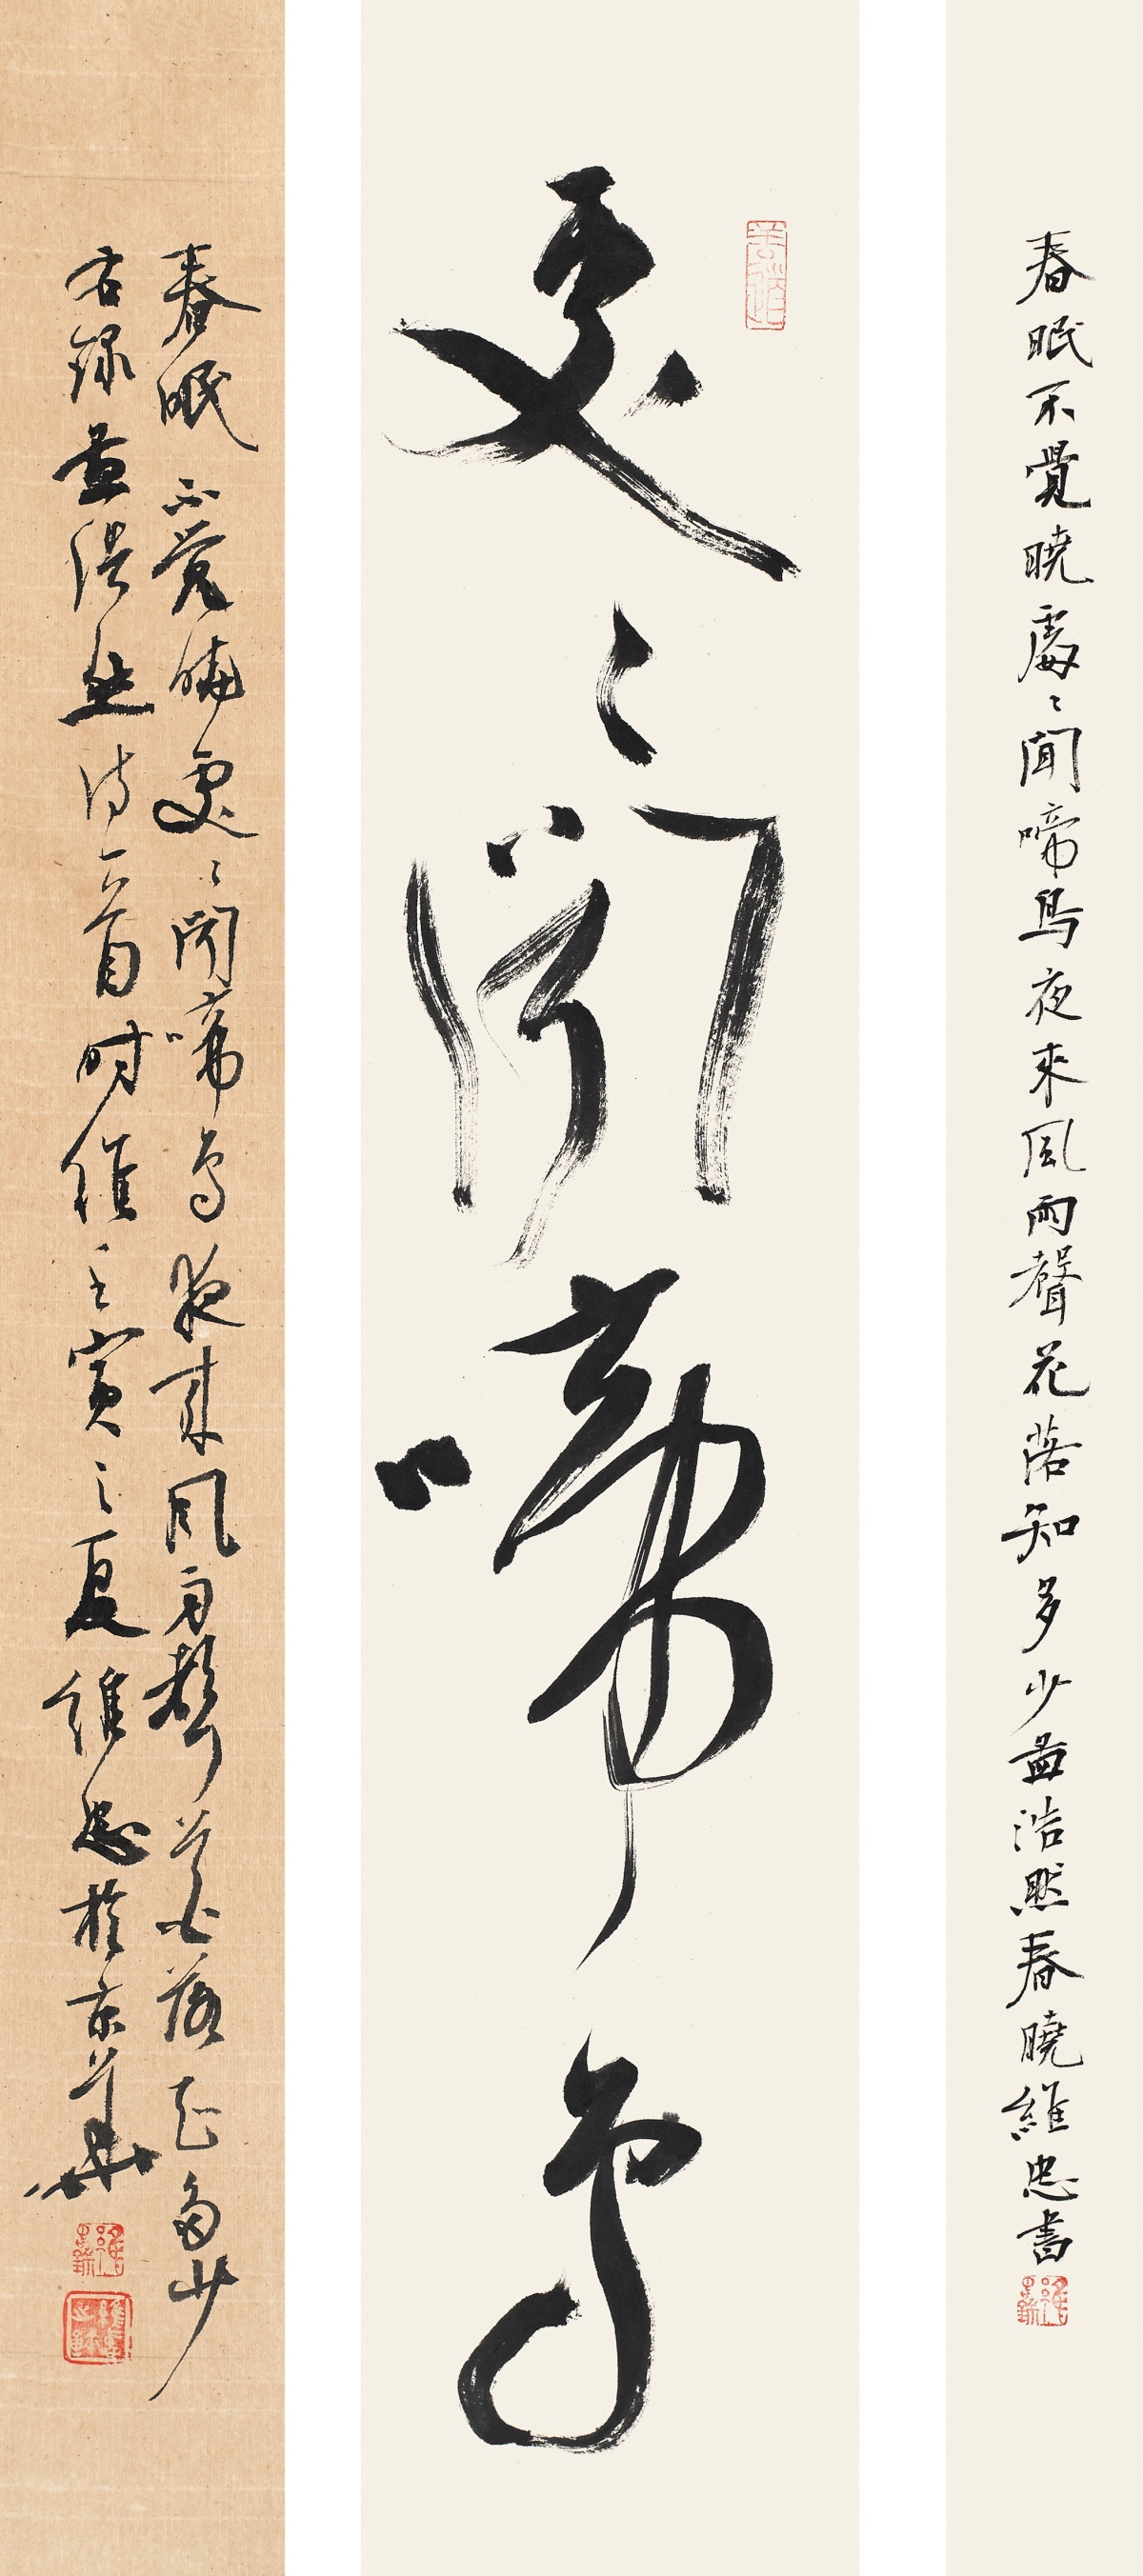 春眠不覺曉處〻聞啼鳥夜來風雨聲花落知多少孟浩然春曉維忠書
處〻聞啼鳥
春眠不覺曉處〻聞啼鳥夜來風雨聲花落知多少
右錄孟浩然詩一首時維壬寅之夏維忠於京華